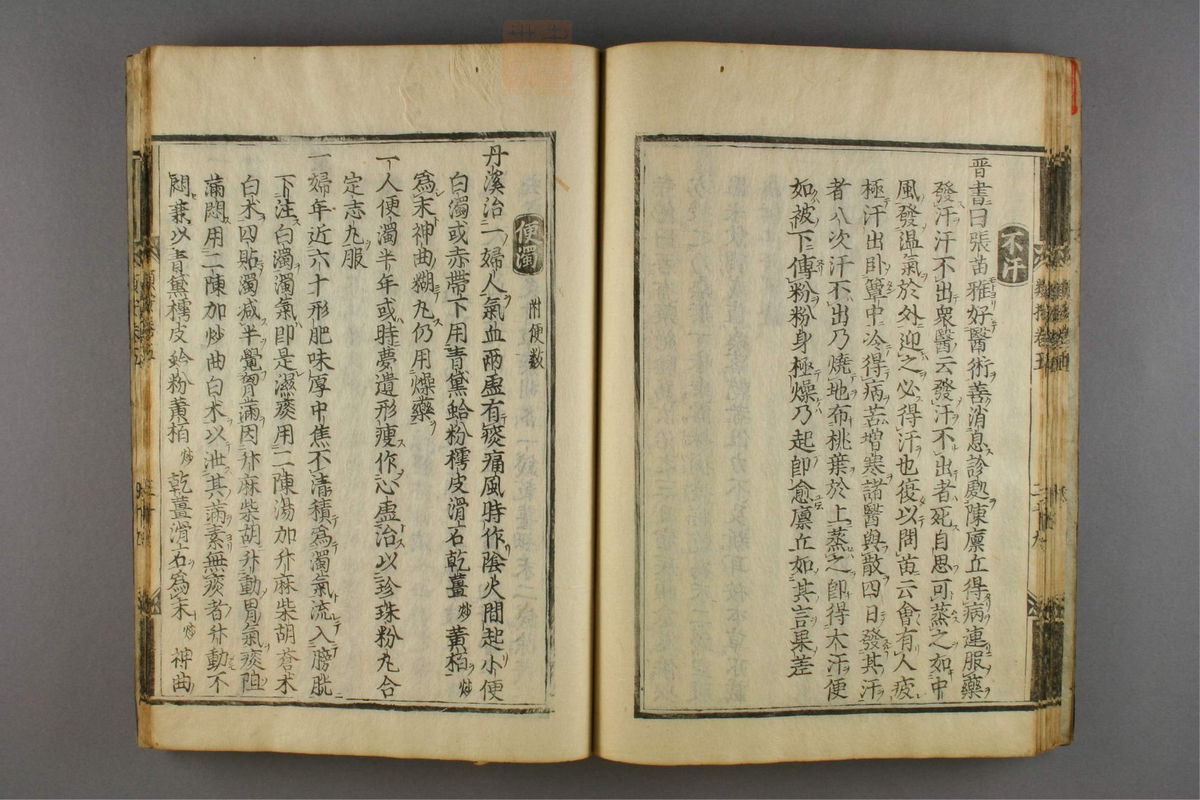 不汗
晋書曰張苗雅好醫術善消息診處陳廩丘得病連服藥
發汗汗不出衆醫云發汗不出者死自思可蒸之如中
風發温氣於外迎之必得汗也復以問苗云會有人疲
極汗出卧簟中冷得病苦増寒諸醫與散四日發其汗
者八次汗不出乃燒地布桃葉於上蒸之即得大汗便
如被下傅粉粉身極燥乃起即愈廩丘如其言果差
便濁 附便数
丹溪治一婦人氣血兩虚有痰痛風時作陰火間起小便
白濁或赤帶下用青黛蛤粉樗皮滑石乾薑炒黄栢炒
為末神曲糊丸仍用燥藥
一人便濁半年或時夢遺形痩作心虚治以珍珠粉丸合
定志丸服
一婦年近六十形肥味厚中焦不清積為濁氣流入膀胱
下注白濁濁氣即是濕痰用二陳湯加升麻柴胡蒼术
白术四貼濁減半覺胷滿因升麻柴胡升動胃氣痰阻
滿悶用二陳加炒曲白术以泄其滿素無痰者升動不
悶兼以青黛樗皮蛤粉黄栢炒乾薑滑石為末炒神曲